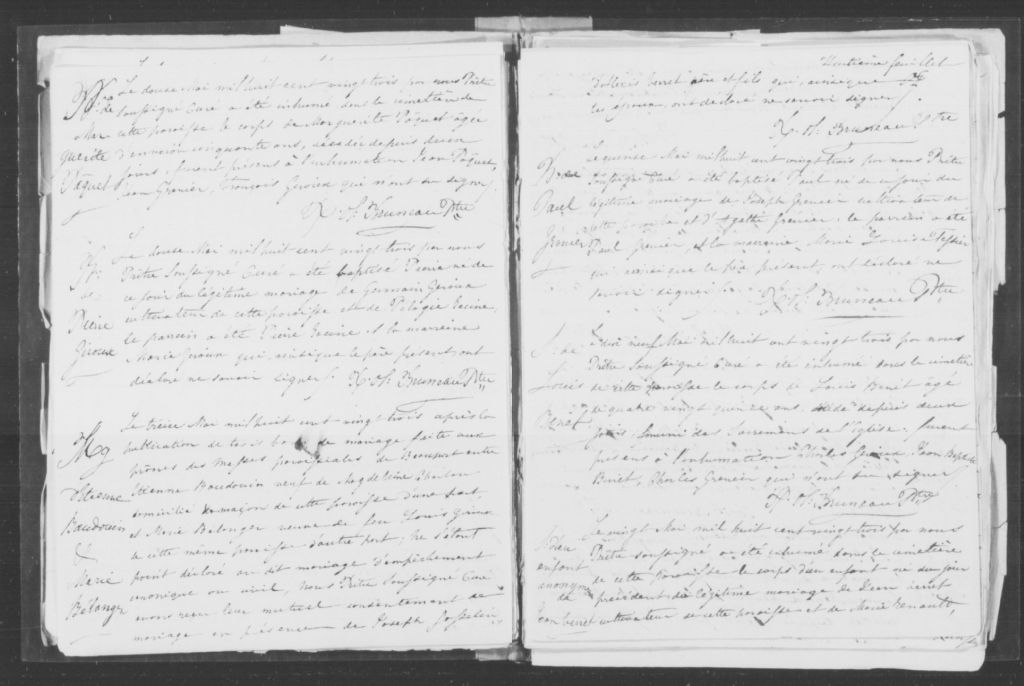 Le douze Mai mil huit cent vingt trois par nous Prêtre
S. de soussigné Curé a été inhumé dans le cimetière de
Mar- cette paroisse le corps de Marguerite Pâquet âgée
guerite d'environ cinquante ans, décédée depuis deux
Pâquet jours, furent présens à l'inhumation Jean Pâquet,
Jean Grenier, François Giroux qui n'ont su signer
X. St. Bruneau Ptre
Le douze Mai mil huit cent vingt trois par nous
Prêtre soussigné Curé a été baptisé Pierre né de
de ce jour du légitime mariage de Germain Giroux
Pierre cultivateur de cette paroisse et de Pélagie
Giroux le parrain a été Pierre et la marraine
Marie Giroux qui, ainsi que le père présent ont
déclaré ne savoir signer. X. St. Bruneau Ptre
Le treize Mai mil huit cent vingt trois après la
Mg publication de trois bans de mariage faite aux
prônes des messes paroissiales de Beauport entre
d'Etienne Etienne Baudouin veuf de Magdeleine
Baudouin domicilié de cette paroisse d'une part,
& et Marie Belanger veuve de feu Louis
Marie de cette même paroisse d'autre part; ne s'étant
Bélanger point déclaré au dit mariage d'empêchement
canonique ou civil, Nous Prêtre soussigné Curé
avons reçu leur mutuel consentement de
mariage en présence de Joseph Josselin
feuillet
benet père et fils qui, ainsique
les époux, ont déclaré ne savoir signer.
X. St. Bruneau Ptre
Le quinze Mai mil huit cent vingt trois par nous Prêtre
B. de soussigné Curé a été baptisé Paul né de ce jour du
Paul légitime mariage de Joseph Grenier cultivateur de
cette paroisse et d'Agathe Grenier; le parrain a été
Paul Grenier et la marraine Marie Louise Tessier
qui ainsi que le père présent, ont déclaré ne
savoir signer.
X. St. Bruneau Ptre
S. de Le dix neuf Mai mil huit cent vingt trois par nous
Prêtre soussigné Curé a été inhumé dans le cimetière
Louis de cette paroisse le corps de Louis Benét âgé
Benét de quatre vingt quinze ans décédé depuis deux
jours, muni des Sacremens de l'Eglise; furent
présens à l'inhumation Charles Giroux, Jean Baptiste
Benét, Charles Grenier qui n'ont su signer
X. St. Bruneau Ptre
Le vingt Mai mil huit cent vingt trois par nous
S. d'un Prêtre soussigné a été inhumé dans le cimetière
enfant de cette paroisse le corps d'un enfant né du jour
anonyme précédent du légitime mariage de Jean benét
de
Jean benét cultivateur de cette paroisse et de Marie Renault,